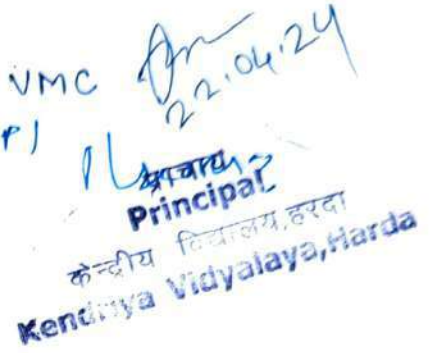 VMC
22.04.24
प्राचार्य
Principal
केन्द्रीय विद्यालय, हरदा
Kendriya Vidyalaya, Harda